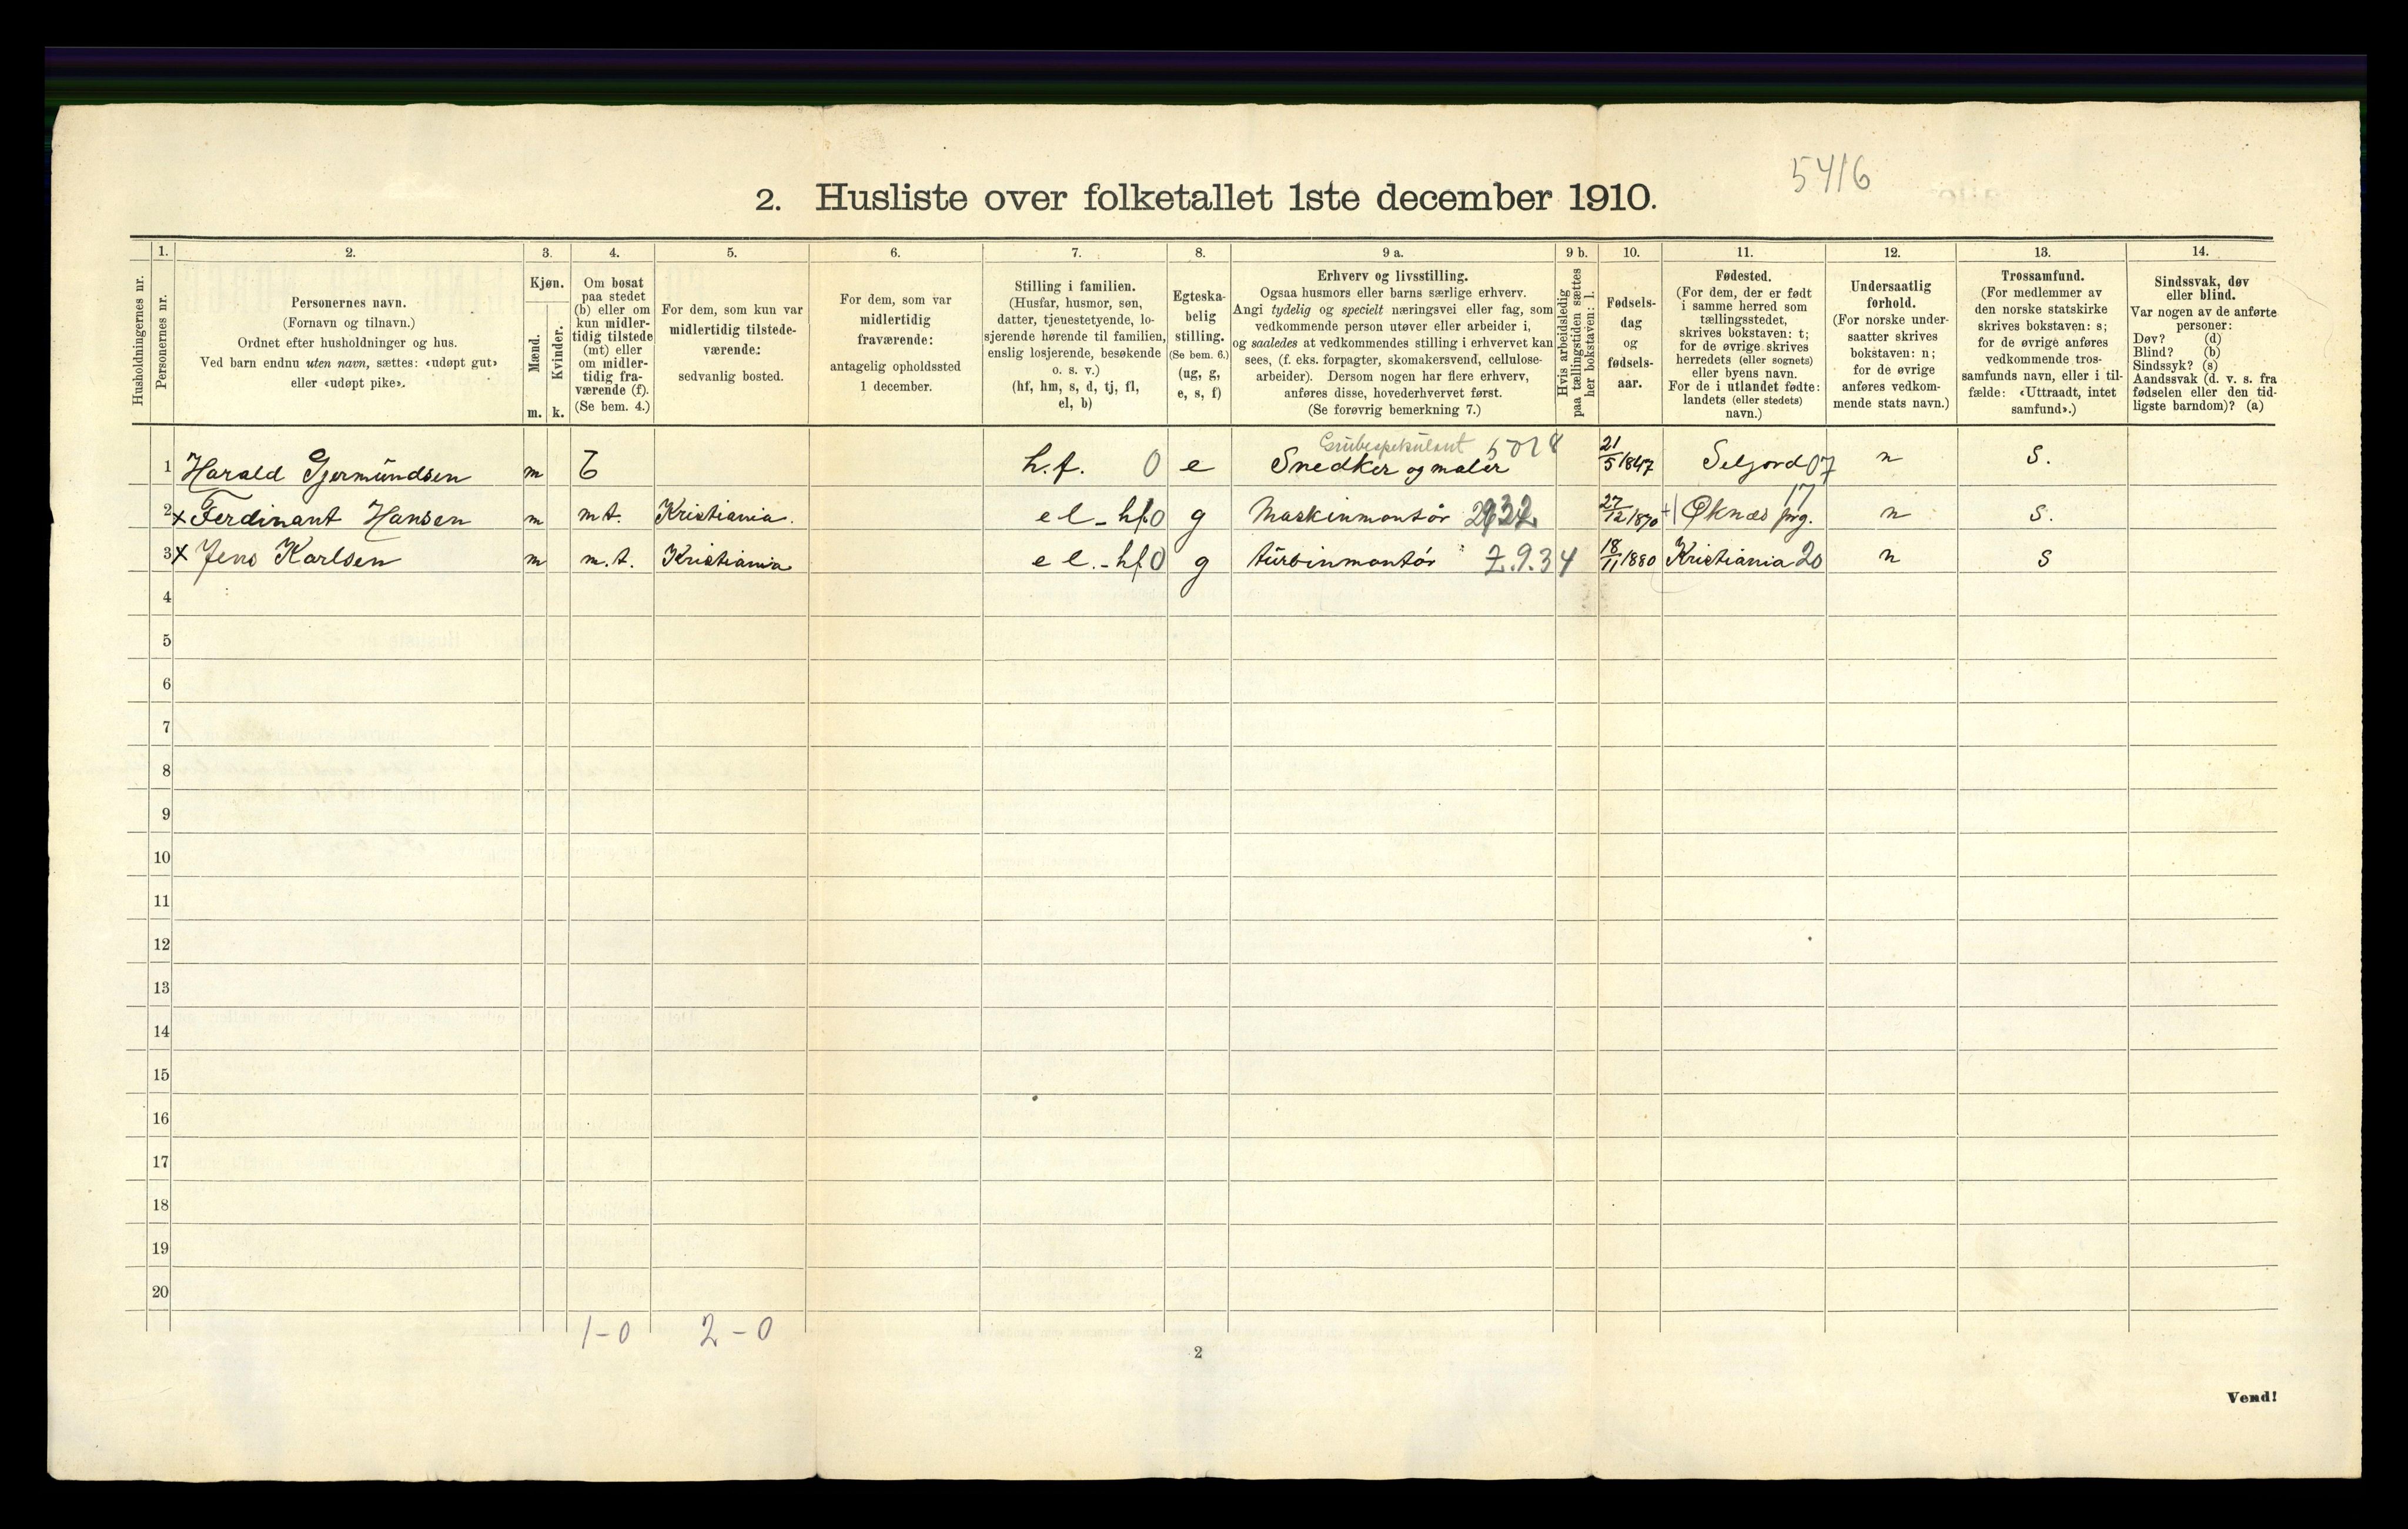 5416
2. Husliste over folketallet 1ste december 1910.
Husholdningernes nr.
1.
Personernes nr.
2.
Personernes navn.
(Fornavn og tilnavn.)
Ordnet efter husholdninger og hus.
Ved barn endnu uten navn, sættes: «udøpt gut»
eller «udøpt pike».
3.
Kjøn.
Mænd.
Kvinder.
m. k.
4.
Om bosat
paa stedet
(b) eller om
kun midler-
tidig tilstede
(mt) eller
om midler-
tidig fra-
værende (f).
(Se bem. 4.)
5.
For dem, som kun var
midlertidig tilstede-
værende:
sedvanlig bosted.
6.
For dem, som var
midlertidig
fraværende:
antagelig opholdssted
1 december.
7.
Stilling i familien.
(Husfar, husmor, søn,
datter, tjenestetyende, lo-
sjerende hørende til familien,
enslig losjerende, besøkende
o. s. v.)
(hf, hm, s, d, tj, fl,
el, b)
8.
Egteska-
belig
stilling.
(Se bem. 6.)
(ug, g,
e, s, f)
9 a.
Erhverv og livsstilling.
Ogsaa husmors eller barns særlige erhverv.
Angi tydelig og specielt næringsvei eller fag, som
vedkommende person utøver eller arbeider i,
og saaledes at vedkommendes stilling i erhvervet kan
sees, (f. eks. forpagter, skomakersvend, cellulose-
arbeider). Dersom nogen har flere erhverv,
anføres disse, hovederhvervet først.
(Se forøvrig bemerkning 7.)
9 b.
Hvis arbeidsledig
paa tællingstiden sættes
her bokstaven: l.
10.
Fødsels-
dag
og
fødsels-
aar.
11.
Fødested.
(For dem, der er født
i samme herred som
tællingsstedet,
skrives bokstaven: t;
for de øvrige skrives
herredets (eller sognets)
eller byens navn.
For de i utlandet fødte:
landets (eller stedets)
navn.)
12.
Undersaatlig
forhold.
(For norske under-
saatter skrives
bokstaven: n;
for de øvrige
anføres vedkom-
mende stats navn.)
13.
Trossamfund.
(For medlemmer av
den norske statskirke
skrives bokstaven: s;
for de øvrige anføres
vedkommende tros-
samfunds navn, eller i til-
fælde: «Uttraadt, intet
samfund».)
14.
Sindssvak, døv
eller blind.
Var nogen av de anførte
personer:
Døv? (d)
Blind? (b)
Sindssyk? (s)
Aandssvak (d. v. s. fra
fødselen eller den tid-
ligste barndom)? (a)
Grubespekulant 5028
1 Harald Gjermundsen m b h.f. 0 e Snedker og maler 21/5 1847 Seljord 07 n s.
2 x Ferdinant Hansen m mt. Kristiania. el - hf. 0 g Maskinmontør 27/12 1870 Øknæs prg. 17 n s.
3 x Jens Karlsen m m.t. Kristiania el. - hf. 0 g turbinmontør 2.9.34 18/11 1880 Kristiania 20 n s
4
5
6
7
8
9
10
11
12
13
14
15
16
17
18
19
20
1-0 2-0
2
Vend!